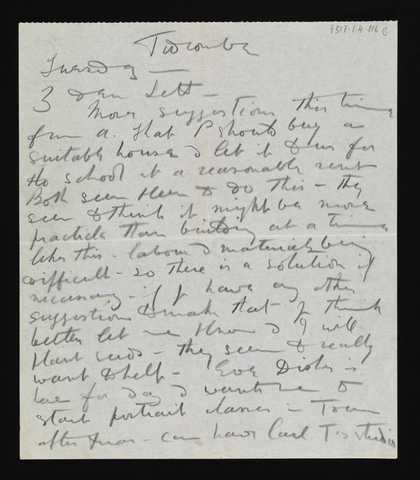 Tidcombe
Tuesday —
Dear Lett —
More suggestions this time
from A. that P should buy a
suitable house & let it to us for
the school at a reasonable rent
Both seem keen to do this — they
seem to think it might be more
practical than building at a time
like this — labour & materials being
difficult — so there is a solution if
necessary — if have any other
suggestions to make that you think
better let me know & I will
they seem to really
want to help —
for day & wants me to
start portrait classes in Town
after